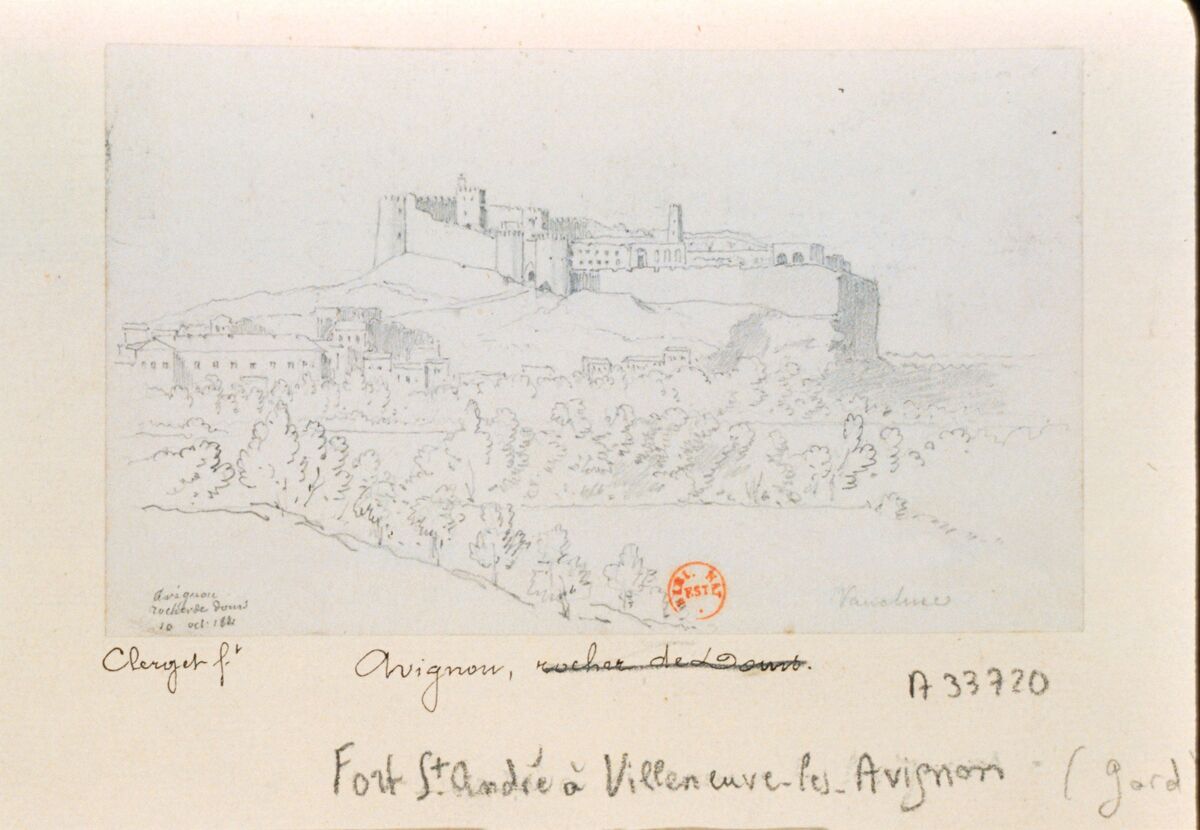 Avignon
rocher de doms
10 oct. 18
BIBL. NAT.
EST.
Vaucluse
Clerget f.t
Avignon, rocher de Doms.
A 33720
Fort St. André à Villeneuve-les-Avignon (Gard